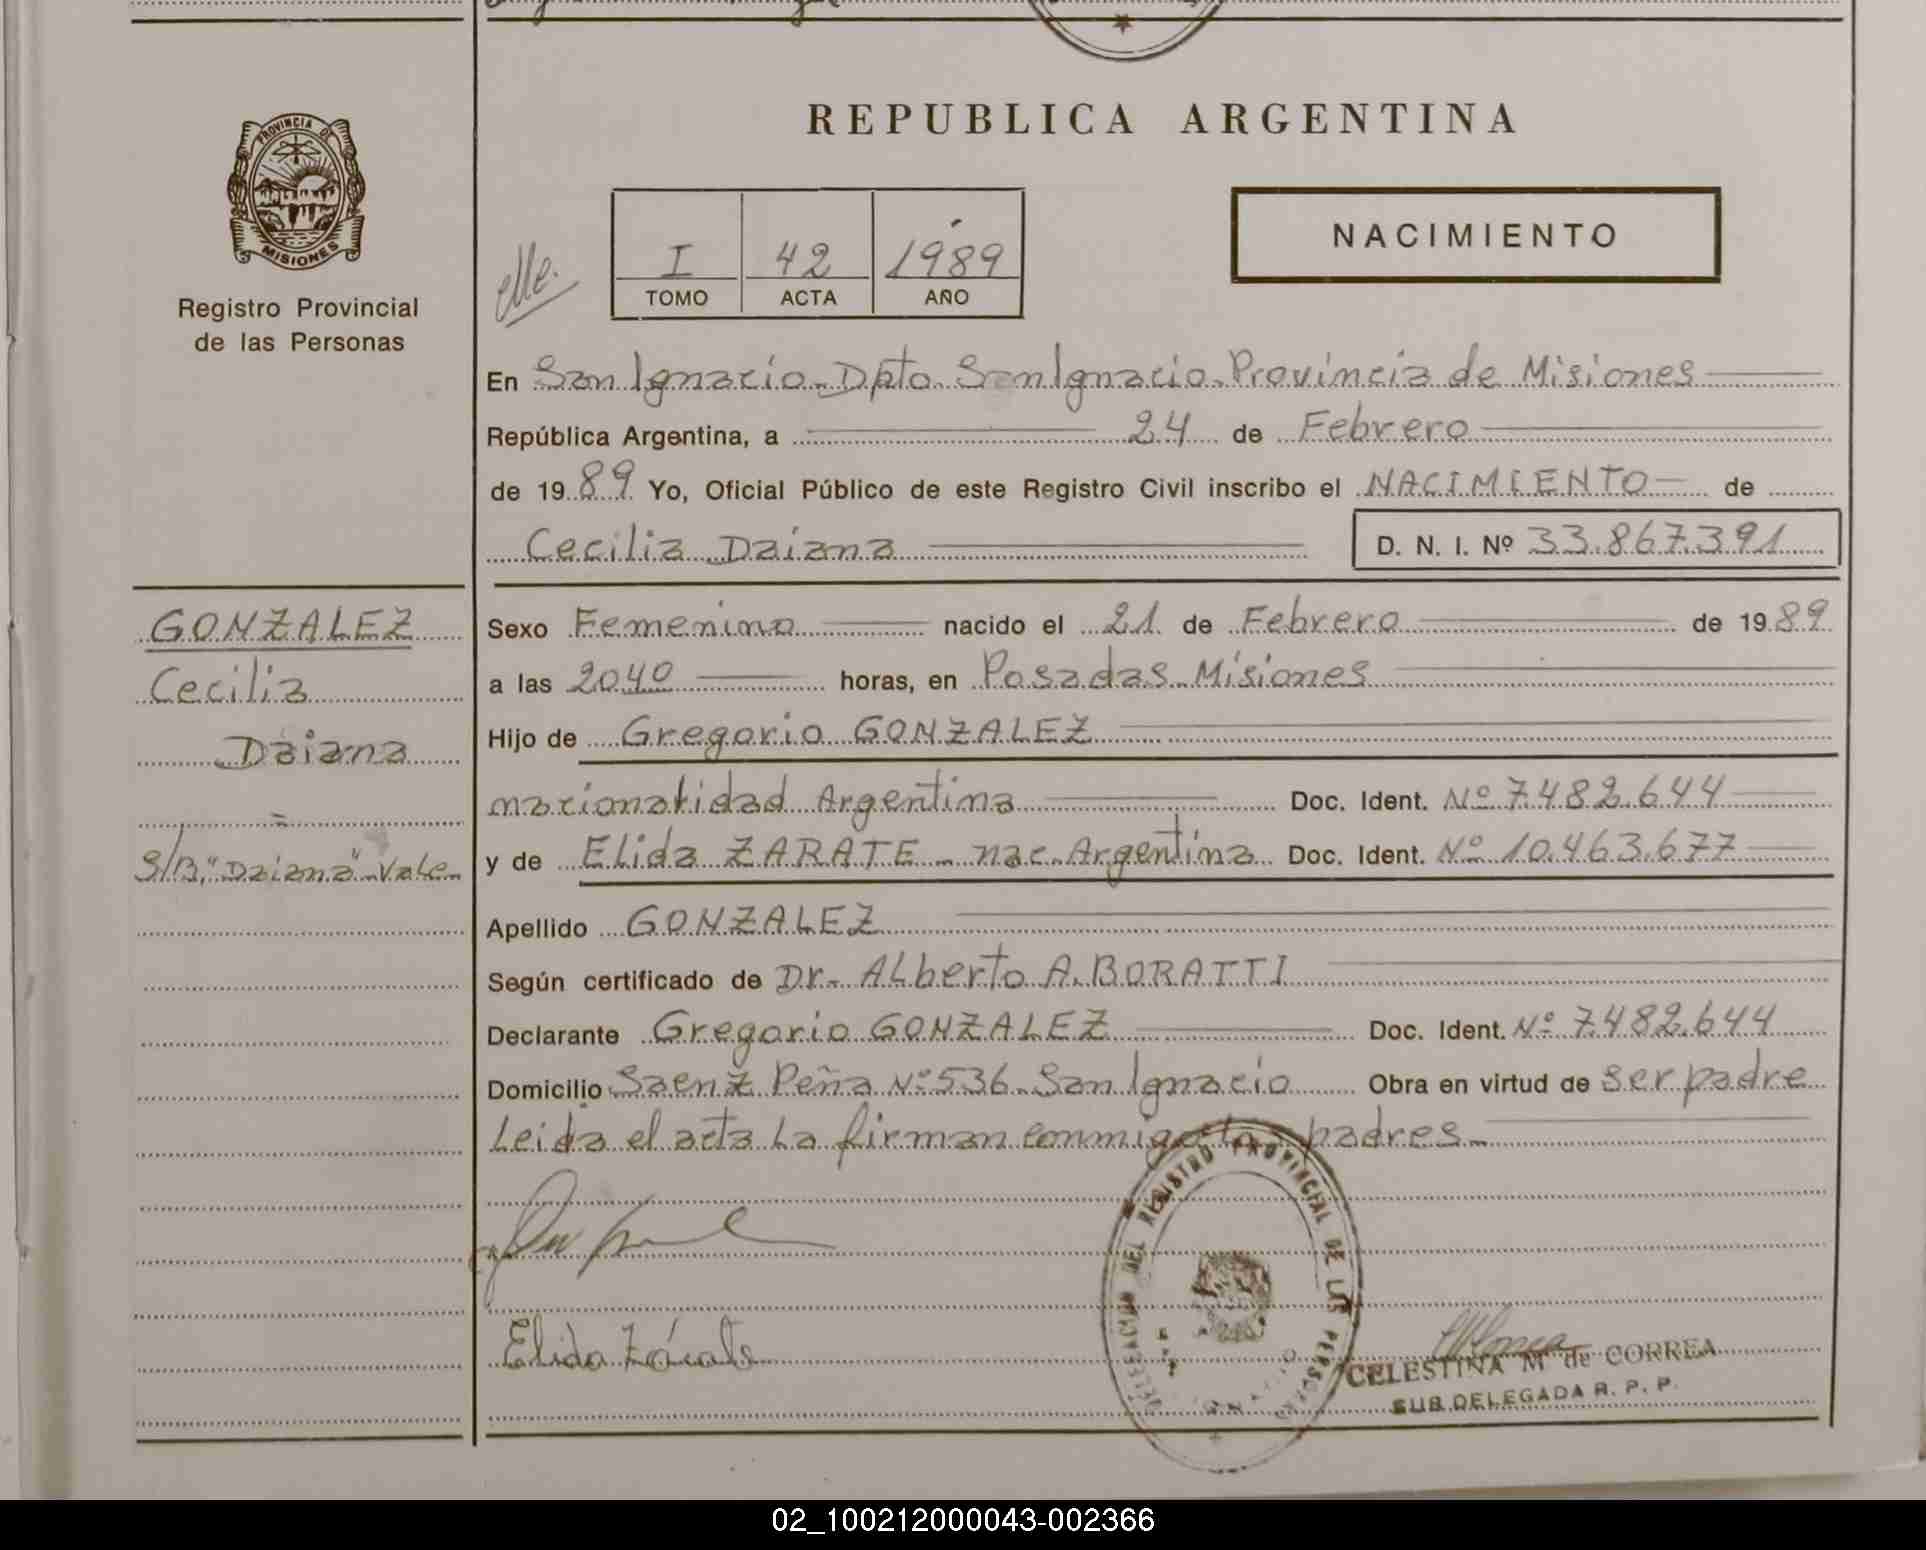 REPUBLICA ARGENTINA
PROVINCIA DE
MISIONES
Registro Provincial
de las Personas
I 42 1989
TOMO ACTA AÑO
NACIMIENTO
En San Ignacio. Dpto. San Ignacio. Provincia de Misiones
República Argentina, a 24 de Febrero
de 1989 Yo, Oficial Público de este Registro Civil inscribo el NACIMIENTO de
Cecilia Daiana
D. N. I. Nº 33.867.391
GONZALEZ
Cecilia
Daiana
=
S/B, "Daiana" Vale
Sexo Femenino nacido el 21 de Febrero de 1989
a las 2040 horas, en Posadas Misiones
Hijo de Gregorio GONZALEZ
nacionalidad Argentina Doc. Ident. Nº 7.482.644
y de Elida ZARATE - nac. Argentina Doc. Ident. Nº 10.463.677
Apellido GONZALEZ
Según certificado de Dr. Alberto A. BORATTI
Declarante Gregorio GONZALEZ Doc. Ident. Nº 7.482.644
Domicilio Saenz Peña Nº 536. San Ignacio Obra en virtud de ser padre
Leida el acta la firman conmigo los padres.
Elida Zárate
DELEGACION DEL REGISTRO PROVINCIAL DE LAS PERSONAS
CELESTINA M de CORREA
SUB DELEGADA R. P. P.
02_100212000043-002366